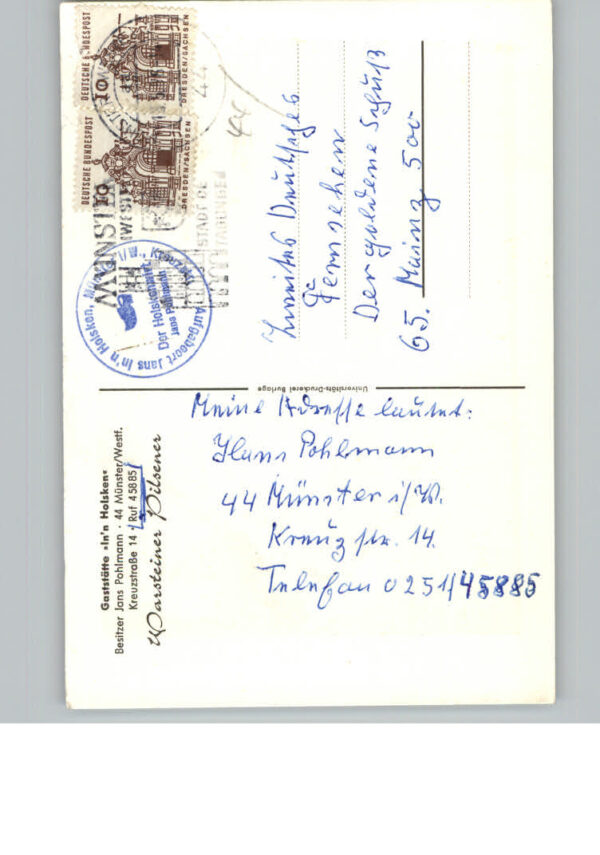 DEUTSCHE BUNDESPOST
10
DRESDEN/SACHSEN
DEUTSCHE BUNDESPOST
10
DRESDEN/SACHSEN
44
Aufgabeort Jans In'n Holsken, Kreuzstr.
Der Holskenwirt
Jans Pohlmann
44
Zweites Deutsches
Fernsehen
Der goldene Schuß
65. Mainz 500
Universitäts-Druckerei Burlage
Gaststätte »In'n Holsken«
Besitzer Jans Pohlmann · 44 Münster/Westf.
Kreuzstraße 14 (Ruf 45885)
Warsteiner Pilsener
Meine Adresse lautet:
Hans Pohlmann
44 Münster i/W.
Kreuzstr. 14.
Telefon 0251/45885